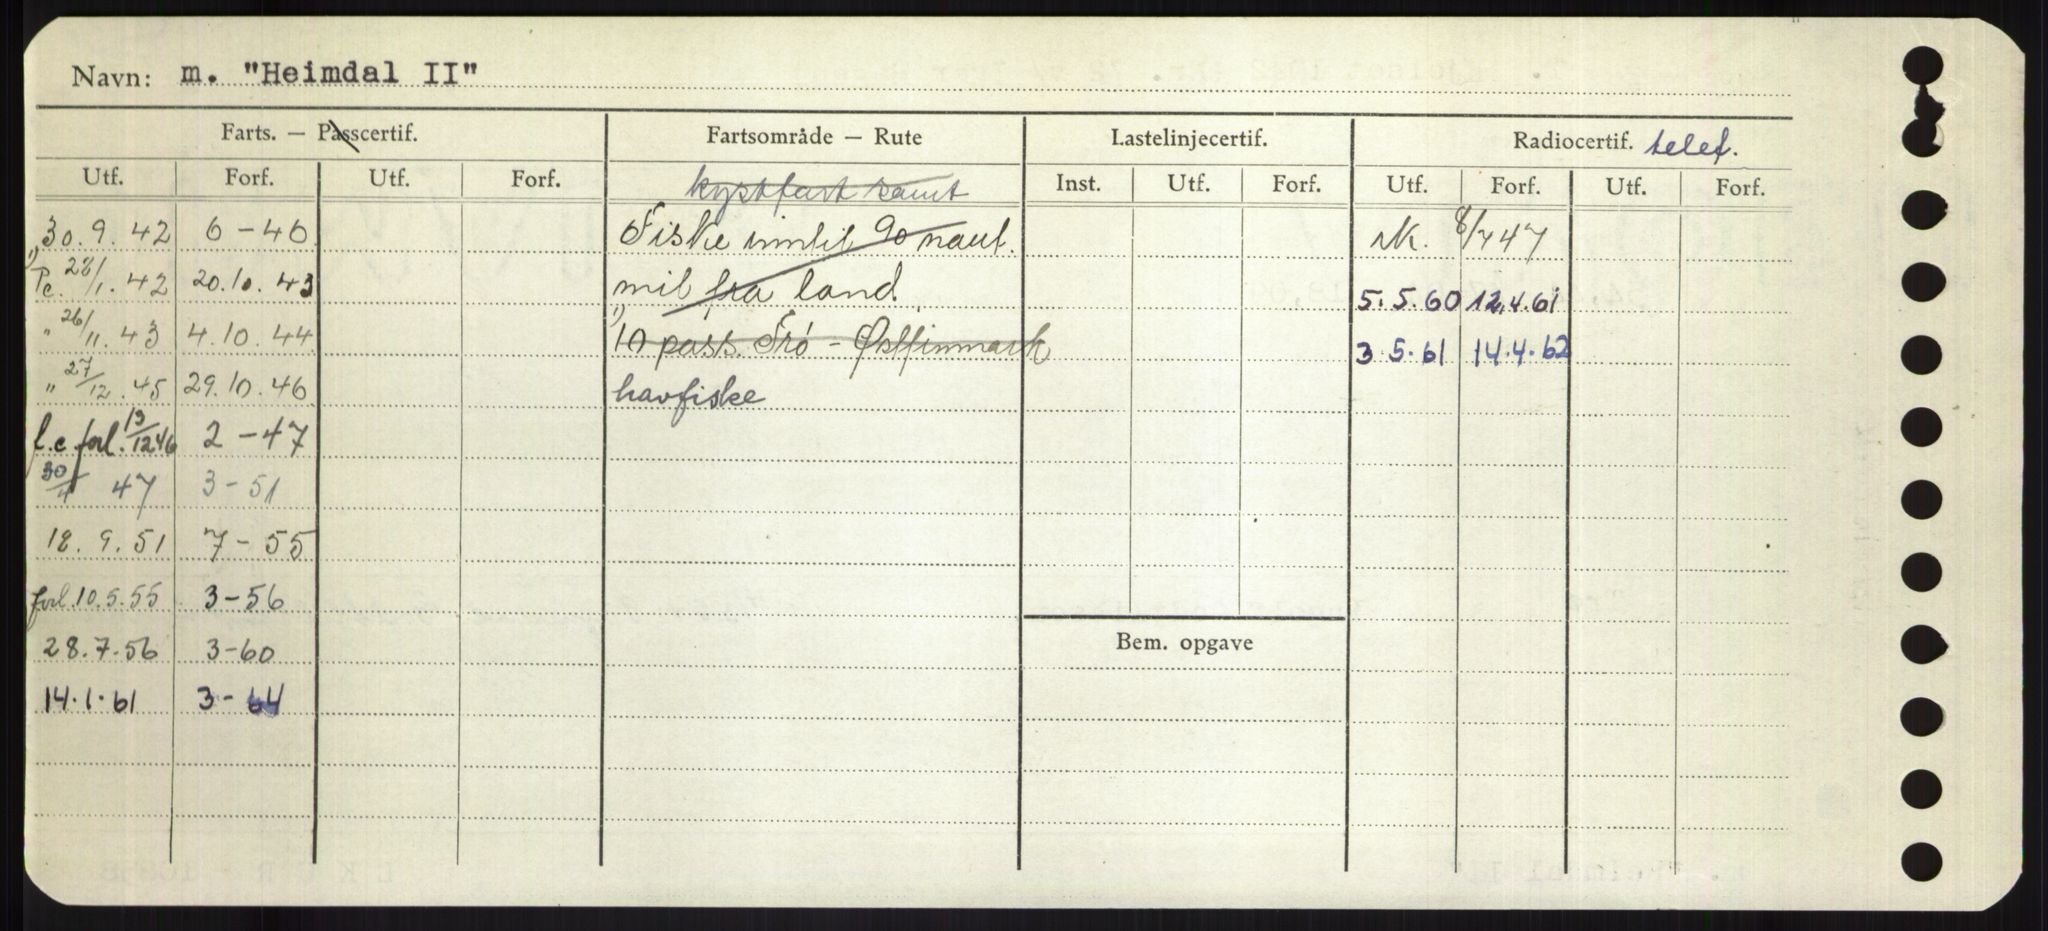 Navn: m. "Heimdal II"
Farts. — Passcertif. Fartsområde — Rute Lastelinjecertif. Radiocertif. telef.
Utf. Forf. Utf. Forf. kystfart samt Inst. Utf. Forf. Utf. Forf. Utf. Forf.
30.9.42 6-46 Fiske inntil 90 naut. 8/7 47
1) Pc. 28/1.42 20.10.43 mil fra land 5.5.60 12.4.61
" 26/11.43 4.10.44 1) 10 pass. Frö - Østfinmark 3.5.61 14.4.62
" 27/12.45 29.10.46 havfiske
f.c. forl. 13/12 46 2-47
30/4 47 3-51
18.9.51 7-55
forl 10.5.55 3-56
Bem. opgave
28.7.56 3-60
14.1.61 3-64